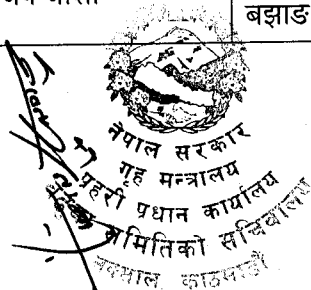 बझाङ
नेपाल सरकार
गृह मन्त्रालय
प्रहरी प्रधान कार्यालय
समितिको सचिवालय
नक्साल, काठमाडौं